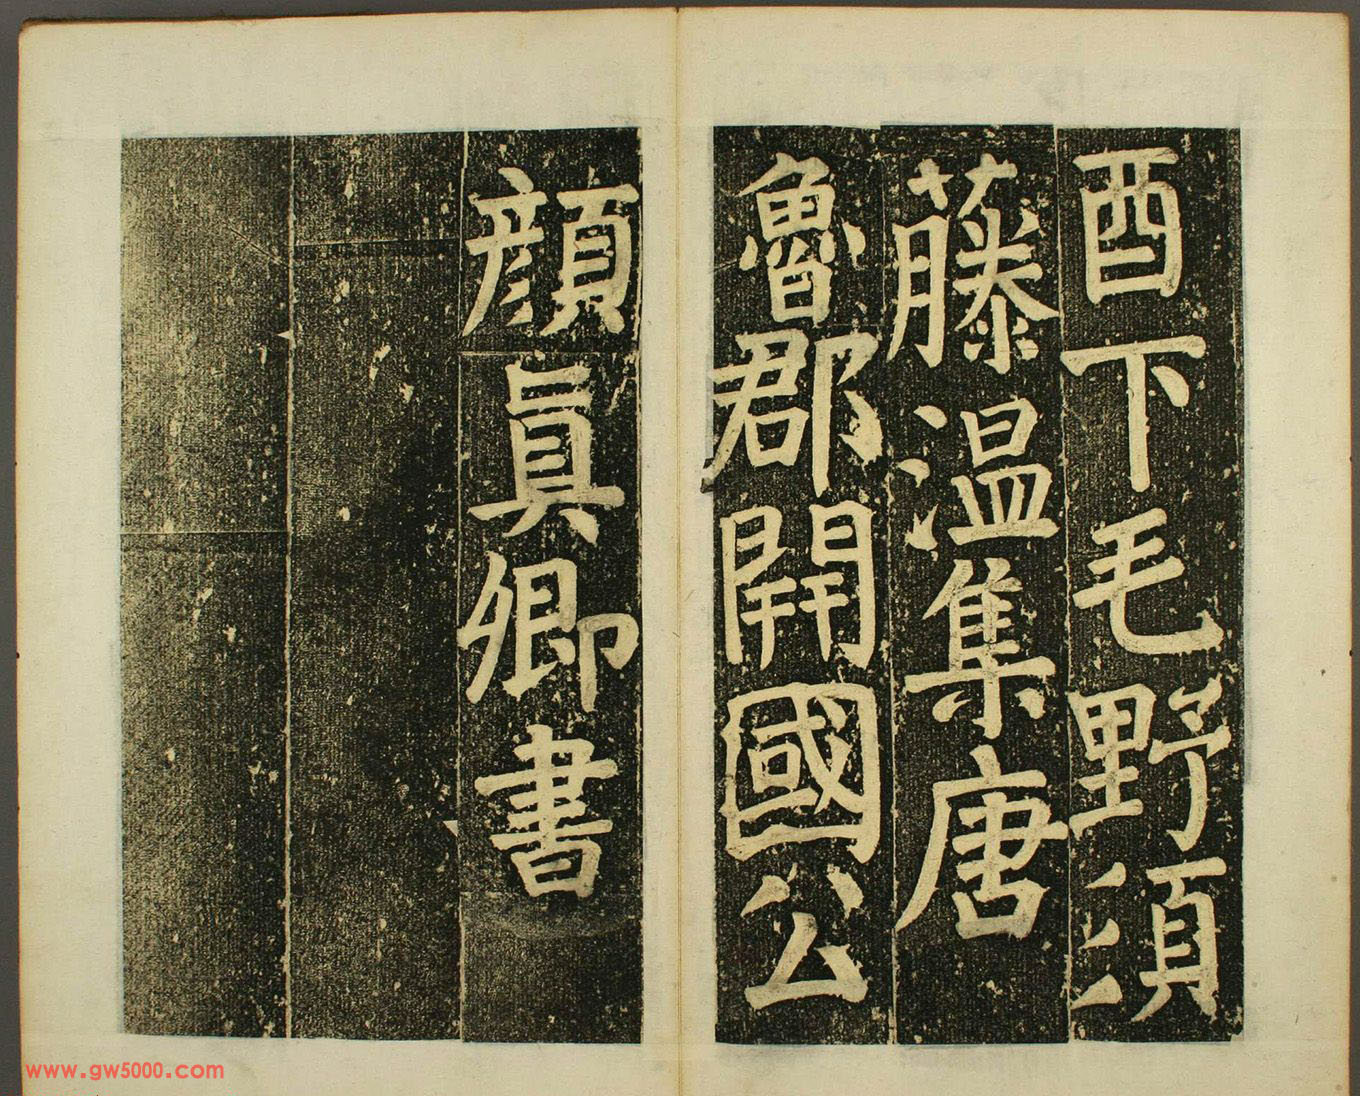 酉下毛野須
藤温集唐
魯郡開國公
顔眞卿書
www.gw5000.com